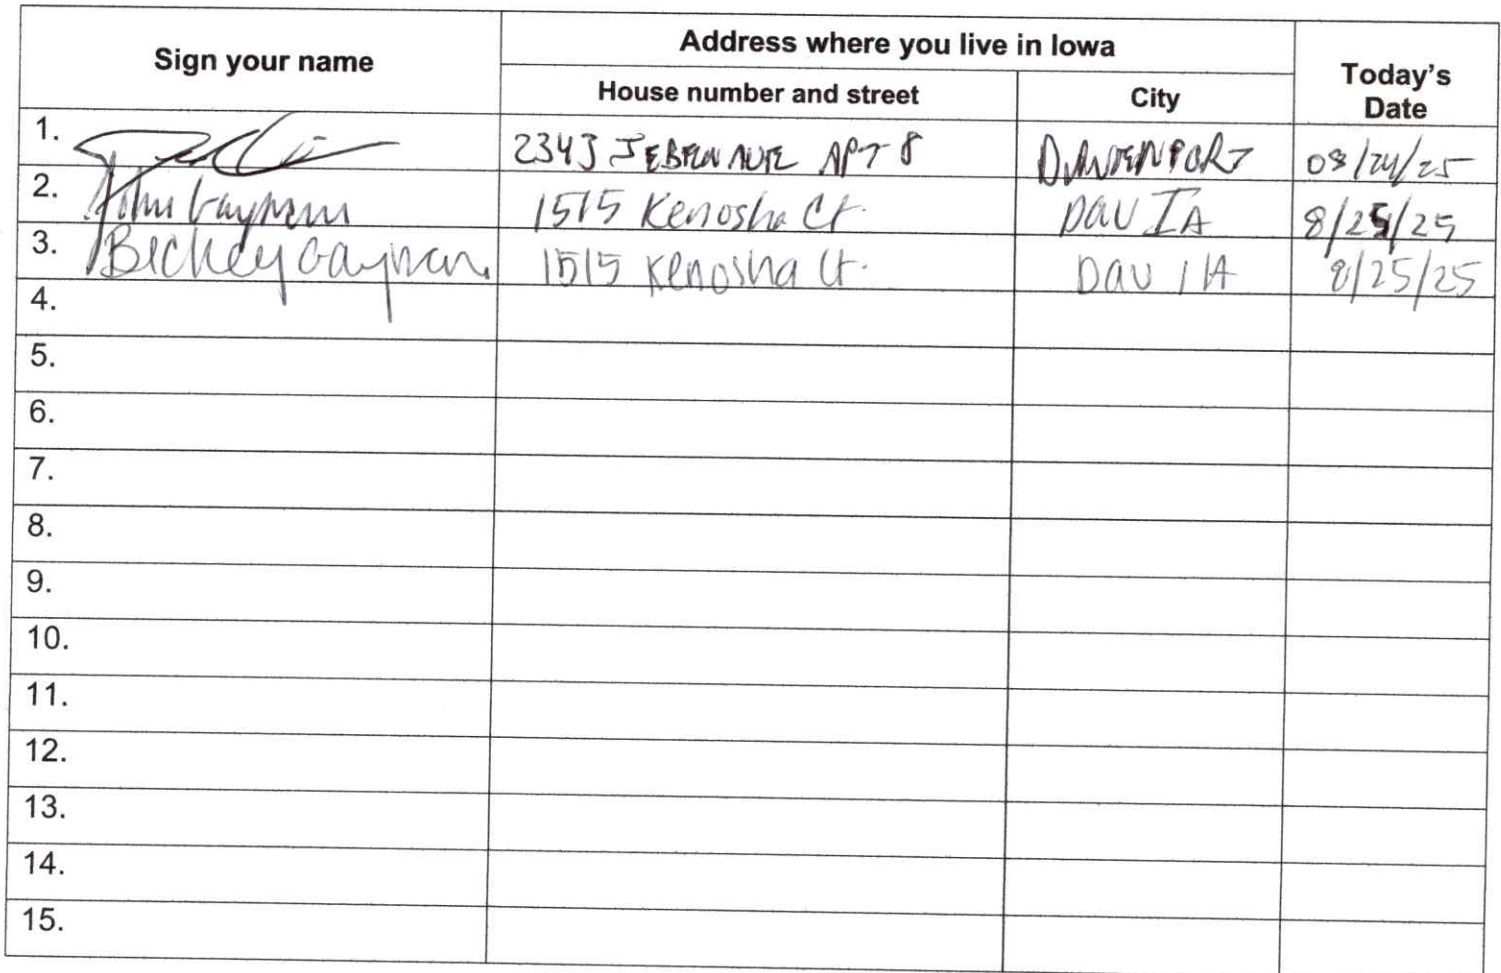 Sign your name
Address where you live in Iowa
House number and street
City
Today's Date
1. 2343 JEBEN AVE APT 8 DAVENPORT 08/24/25
2. John Gayman 1515 Kenosha Ct. Dav IA 8/25/25
3. Beckey Gayman 1515 Kenosha Ct. Dav IA 8/25/25
4.
5.
6.
7.
8.
9.
10.
11.
12.
13.
14.
15.